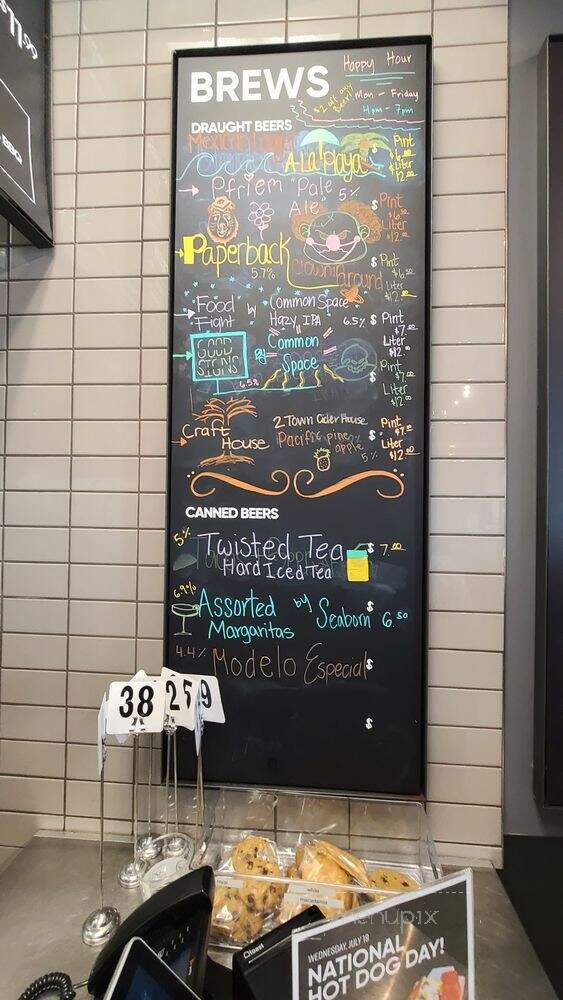 $11.99
BBQ
BREWS
Happy Hour
$2 off any
Beer!
Mon - Friday
4pm - 7pm
DRAUGHT BEERS
Mexican Lager
A La Playa
$ Pint
Liter
12.00
Pfriem "Pale
Ale" 5%
$ Pint
6.50
Liter
$12.00
Paperback
5.7%
Clown Around
$ Pint
$6.50
Liter
$12.00
Food
Fight
by Common Space
Hazy IPA 6.5%
$ Pint
$7.00
Liter
$12.00
GOOD
SIGNS
by Common
Space
6.5%
$ Pint
$7.00
Liter
$12.00
Craft
House
2 Town Cider House
Pacific pine
apple
5%
$ Pint
$7.00
Liter
$12.00
CANNED BEERS
5%
Twisted Tea
Hard Iced Tea
$ 7.00
6.9%
Assorted by Seaborn
Margaritas
$ 6.50
4.4% Modelo Especial $
$
38
25
9
white
macadamia
menupix
Closet
WEDNESDAY, JULY 19
NATIONAL
HOT DOG DAY!